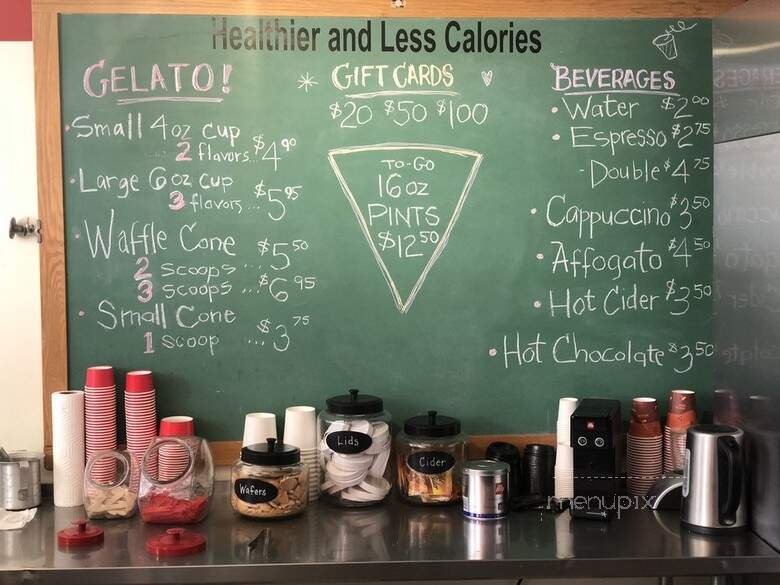 Healthier and Less Calories
GELATO!
• Small 4oz cup
2 flavors.. $4.90
• Large 6oz cup
3 flavors... $5.95
• Waffle Cone
2 scoops ... $5.50
3 scoops ... $6.95
• Small Cone
1 scoop ... $3.75
* GIFT CARDS
$20 $50 $100
TO-GO
16 oz
PINTS
$12.50
BEVERAGES
• Water $2.00
• Espresso $2.75
- Double $4.75
• Cappuccino $3.50
• Affogato $4.50
• Hot Cider $3.50
• Hot Chocolate $3.50
Wafers
Lids
Cider
illy
menupix